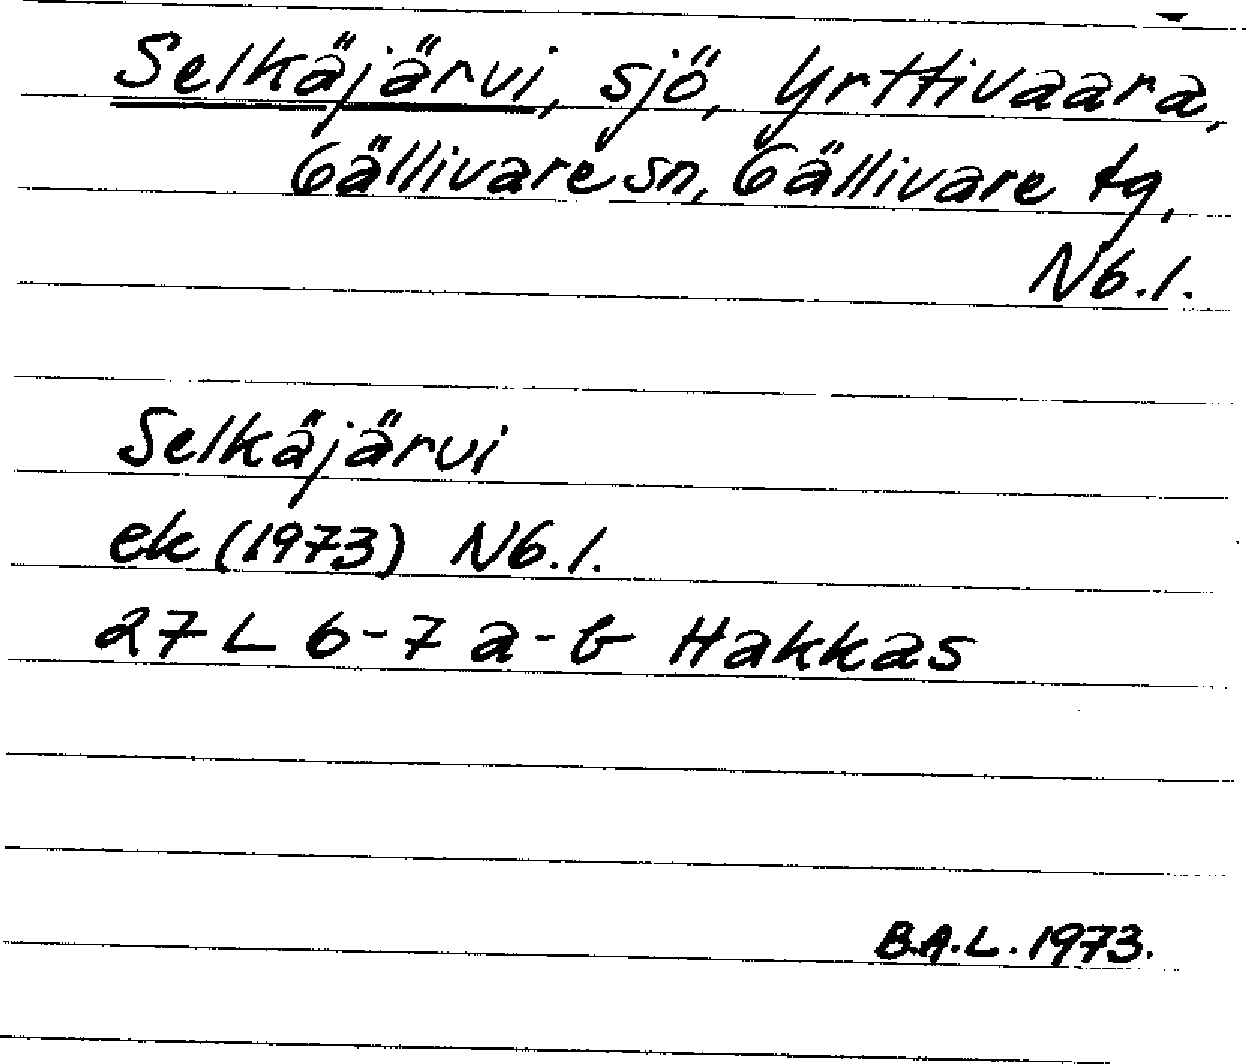 Selkäjärvi, sjö, Yrttivaara,
Gällivare sn, Gällivare tg,
Nb.l.
Selkäjärvi
ek (1973) Nb.l.
27 L 6-7 a-b Hakkas
B.A.L. 1973.